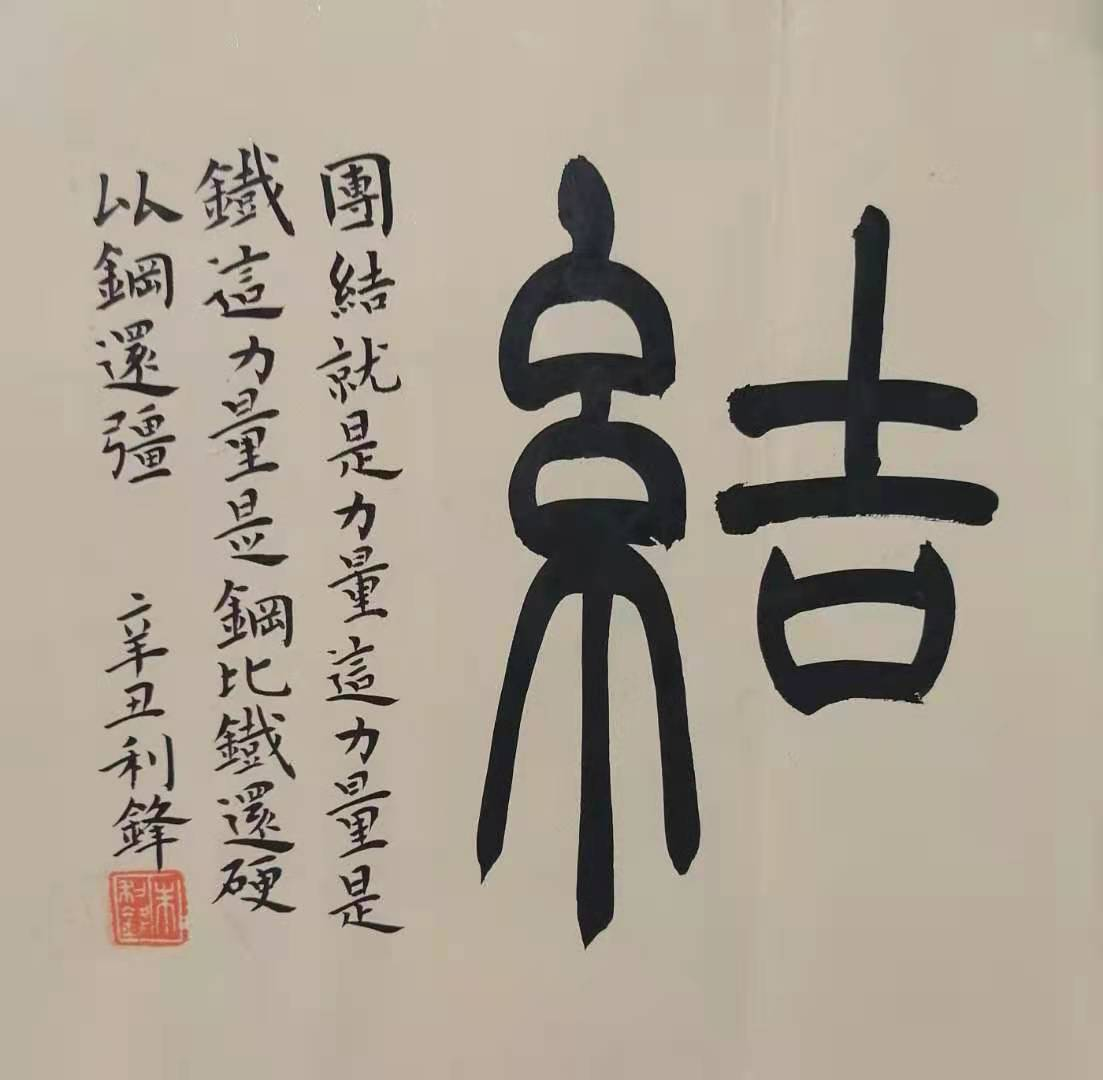 結
團結就是力量這力量是
鐵這力量是鋼比鐵還硬
以鋼還彊
辛丑利鋒
朱利鋒